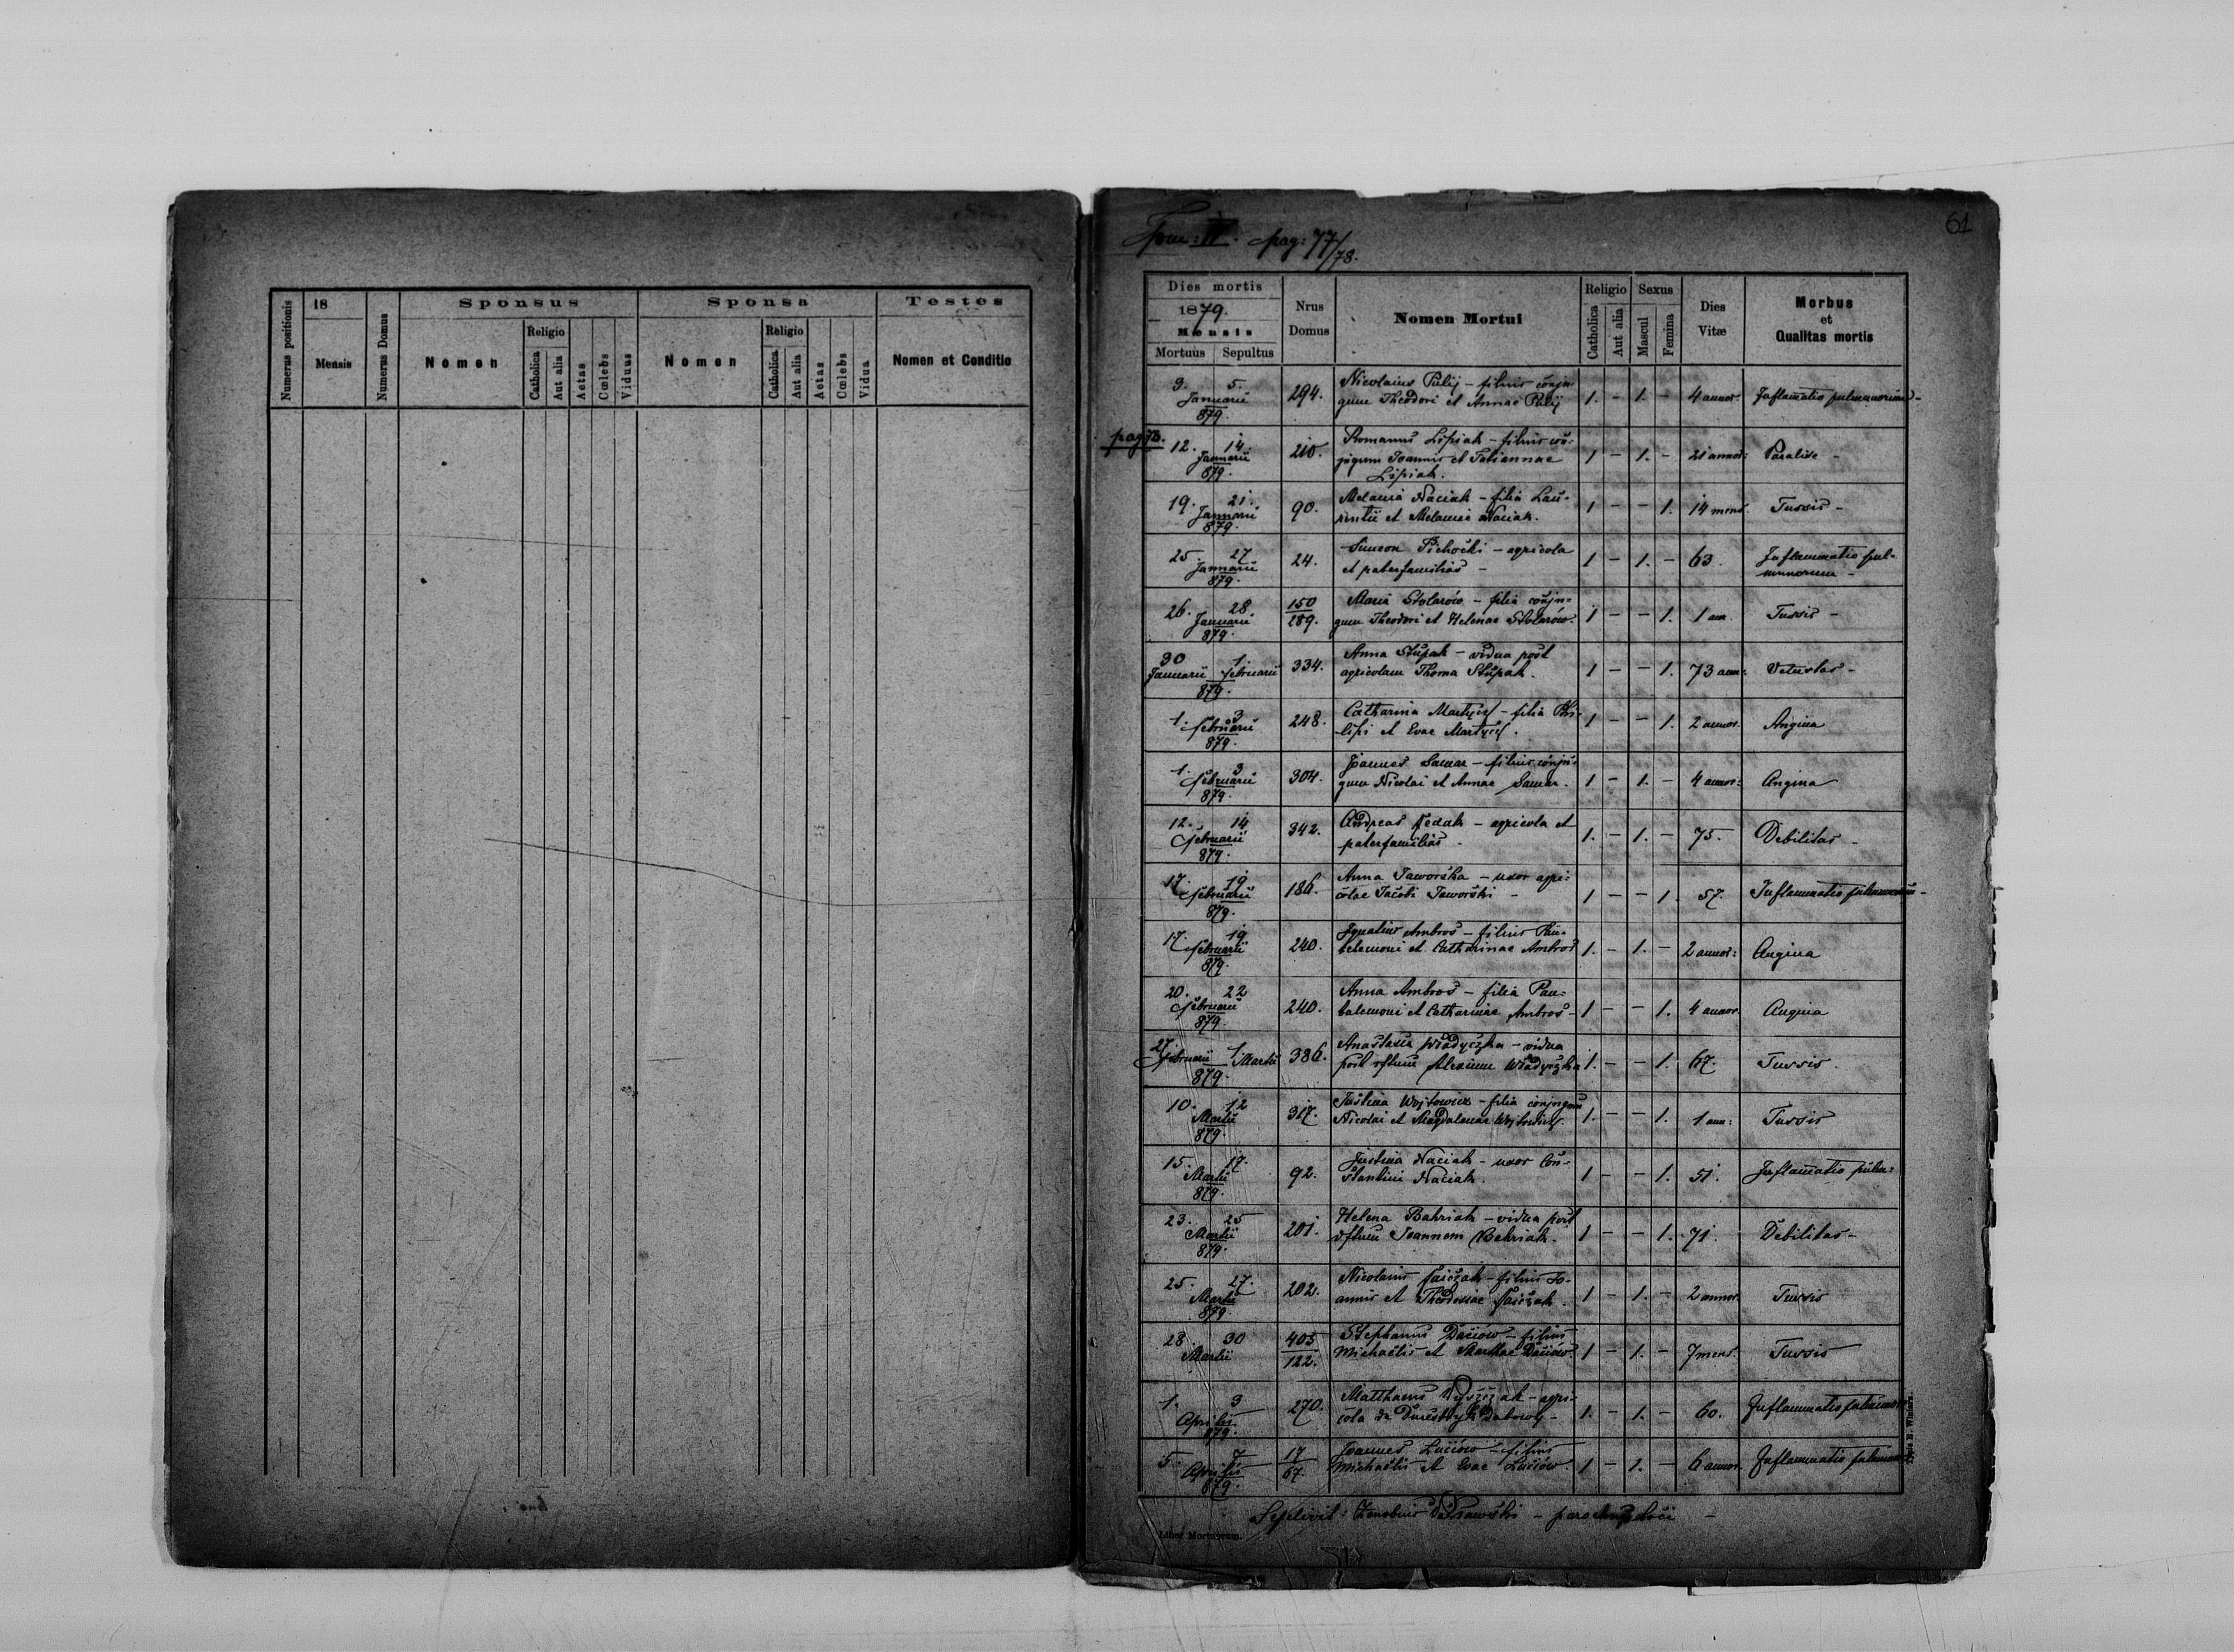 Numerus positionis
18
Mensis
Numerus Domus
Sponsus
Nomen
Religio
Catholica
Aut alia
Aetas
Cœlebs
Viduus
Sponsa
Nomen
Religio
Catholica
Aut alia
Aetas
Cœlebs
Vidua
Testes
Nomen et Conditio
61
Tom: IV. pag: 77/78.
Dies mortis
1879.
Mensis
Mortuus Sepultus
Nrus Domus
Nomen Mortui
Religio
Catholica
Aut alia
Sexus
Mascul
Femina
Dies Vitæ
Morbus
et
Qualitas mortis
3. 5. Januarii 879. 294. Nicolaius Pulij – filius conju-
gum Theodori et Annae Pulij 1. – 1. – 4 annor. Inflamatio pulmunorum –
12. 14. Januarii 879. 210. Romanus Lipiak – filius con-
jugum Joannis et Tatiannae 1 – 1. – 21 annor: Paralise –
Lipiak.
19. 21. Januarii 879. 90. Melania Naciak – filia Lau-
rentii et Melaniae Naciak. 1 – – 1. 14 mens. Tussis –
25. 27 Januarii 879. 24. Simeon Pichocki – agricola
et paterfamilias – 1 – 1. – 63. Inflammatio pul-
munorum –
26. 28. Januarii 879. 150/289. Maria Stolarów – filia conju-
gum Theodori et Helenae Stolarów. 1 – – 1. 1 ann. Tussis –
30 Januarii 1. Februarii 879. 334. Anna Stupak – vidua post
agricolam Thoma Stupak. 1 – – 1. 73 ann. Vetustas –
1. 3 Februarii 879. 248. Catharina Martyn – filia Phi-
lipi et Evae 1 – – 1. 2 annor. Angina
1. 3 Februarii 879. 304. Joannes Samar – filius conju-
gum Nicolai et Annae Samar. 1 – 1. – 4 annor: Angina
12. 14 Februarii 879. 342. Andreas Fedak – agricola et
paterfamilias – 1. – 1. – 75. Debilitas –
17. 19 Februarii 879. 186. Anna Jaworska – uxor agri-
colae Jacobi Jaworski – 1 – – 1. 57. Inflammatio pulmunorum –
17. 19 Februarii 879. 240. Ignatius Ambros – filius Pan-
telemoni et Catharinae Ambros 1. – 1. – 2 annor: Angina
20. 22 Februarii 879. 240. Anna Ambros – filia Pan-
talemoni et Catharinae Ambros – 1 – – 1. 4 annor. Angina
27. Februarii 1. Martii 879. 386. Anastasia Władyczka – vidua
post Władyczka 1. – – 1. 67. Tussis.
10. 12 Martii 879. 317. Justina Wojtowicz – filia conjugum
Nicolai et Magdalenae 1. – – 1. 1 ann: Tussis
15. 17. Martii 879. 92. Justina Naciak – uxor Con-
stantini Naciak. 1 – – 1. 51. Inflamatio pulm:
23. 25 Martii 879. 201. Helena Bahriak – vidua post
Joannem Bahriak. 1 – – 1. 71. Debilitas –
25. 27. Martii 879. 202. Nicolaius – filius Jo-
annis et Theodosiae 1 – 1. – 2 annor. Tussis
28. 30 Martii 405/122. Stephanus Daciów – filius
Michaëlis et Marthae Daciów. 1 – 1. – 7 mens. Tussis
1. 3 Aprilis 879. 270. Matthaeus – agri-
cola 1. – 1. – 60. Inflammatio
5. 7 Aprilis 879. 17/67. Joannes Luciów – filius
Michaëlis et Evae Luciów. 1 – 1. – 6 annor. Inflammatio
Sepelivit: Zenobius
Liber Mortuorum.